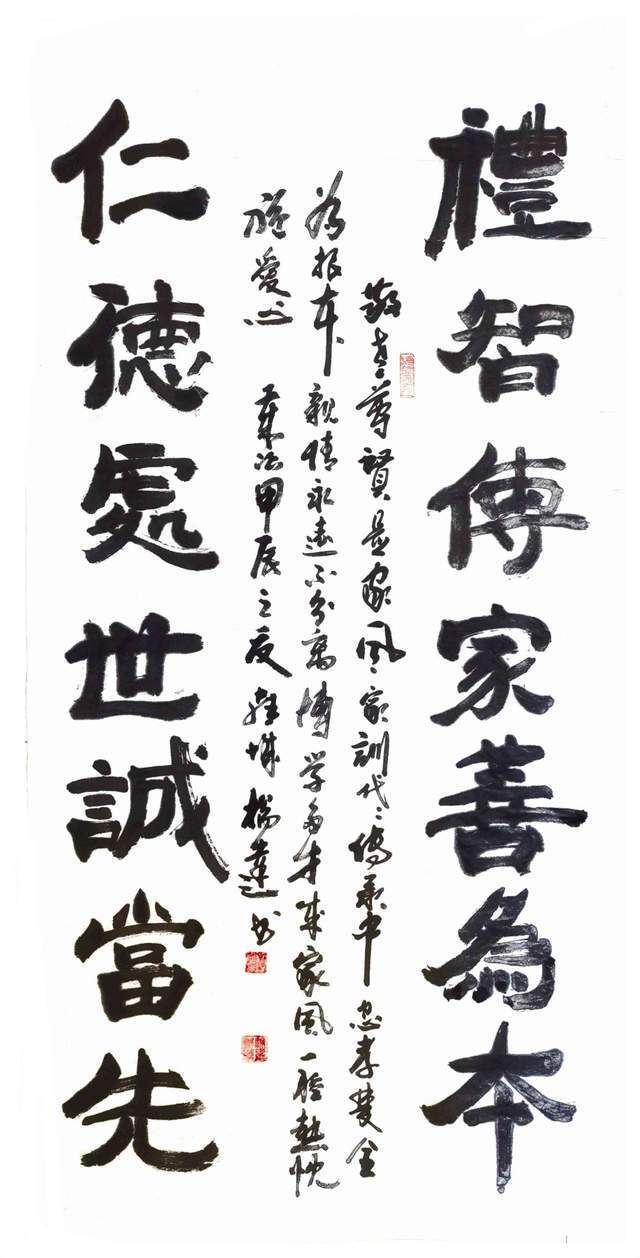 禮智傳家善為本
敬老尊賢是家風家訓代代傳承中忠孝雙全
為根本親情永遠不分離博学多才成家風一腔熱忱
施愛心 歲次甲辰之夏 書
仁德處世誠當先